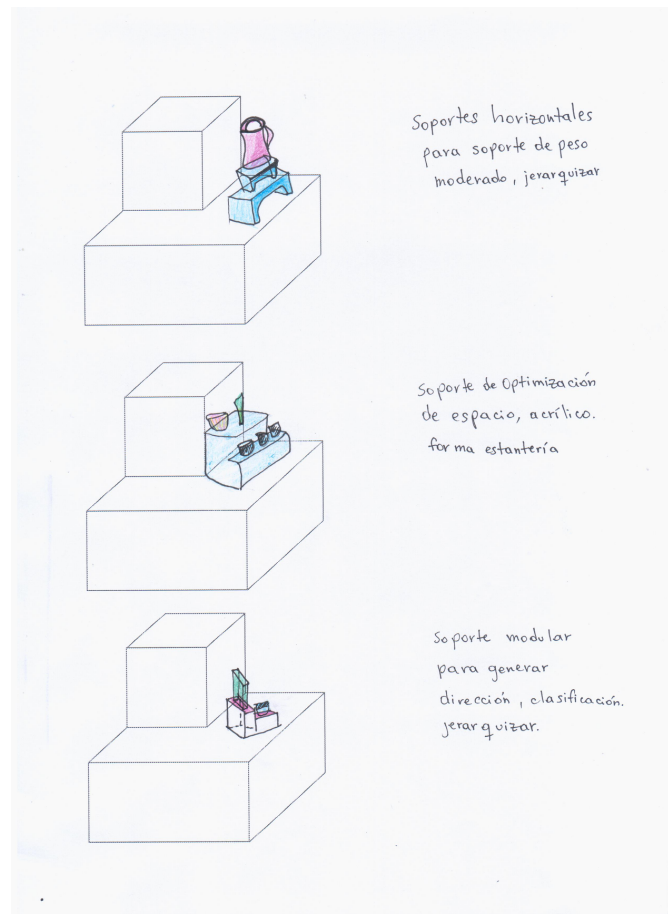 Soportes horizontales
para soporte de peso
moderado, jerarquizar
Soporte de Optimización
de espacio, acrílico.
forma estantería
Soporte modular
para generar
dirección, clasificación.
jerarquizar.